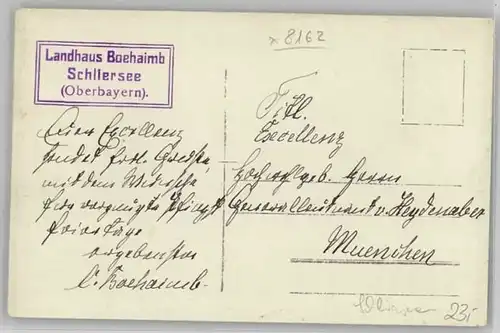 x 8162
Landhaus Boehaimb
Schliersee
(Oberbayern).
Euer Excellenz
sendet frdl. Grüsse,
mit dem Wunsche
für vergnügte Pfingst
feiertage
ergebenster
C. Boehaimb.
Titl.
Excellenz
Hochwohlgeb. Herrn
Generalleutnant v. Heydenaber
Muenchen
23,-